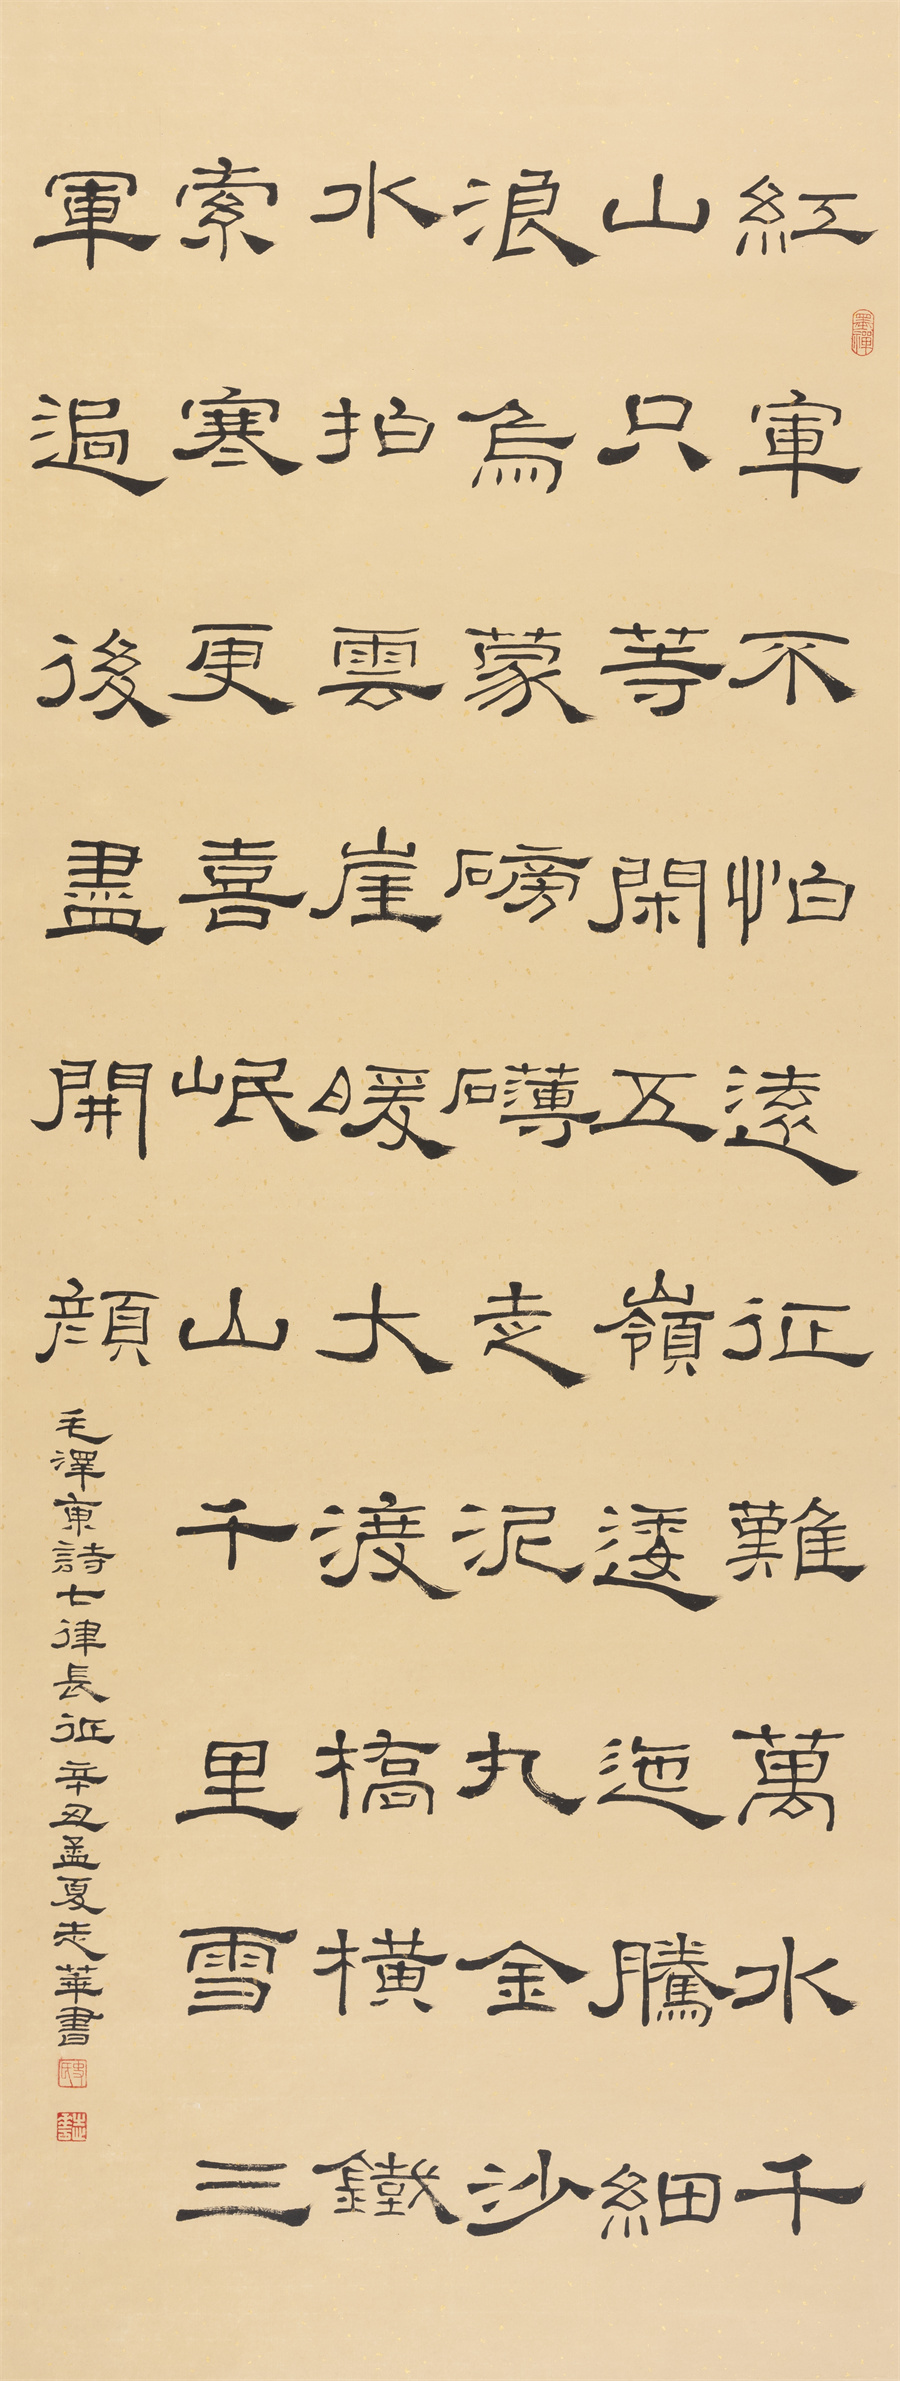 紅軍不怕遠征難萬水千
山只等閑五嶺逶迤騰細
浪烏蒙磅礴走泥丸金沙
水拍雲崖暖大渡橋橫鐵
索寒更喜岷山千里雪三
軍過後盡開顏
毛澤東詩七律長征辛丑孟夏志華書